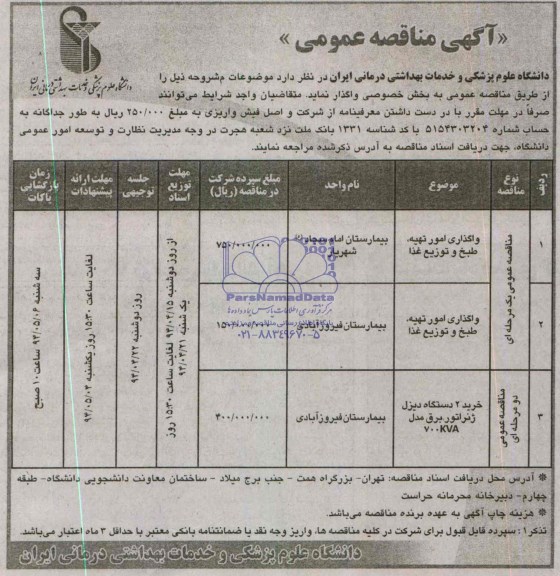 «آگهی مناقصه عمومی»
دانشگاه علوم پزشکی و خدمات بهداشتی درمانی ایران
دانشگاه علوم پزشکی و خدمات بهداشتی درمانی ایران در نظر دارد موضوعات مشروحه ذیل را
از طریق مناقصه عمومی به بخش خصوصی واگذار نماید. متقاضیان واجد شرایط می‌توانند
صرفاً در مهلت مقرر با در دست داشتن معرفینامه از شرکت و اصل فیش واریزی به مبلغ ۲۵۰/۰۰۰ ریال به طور جداگانه به
حساب شماره ۵۱۵۴۳۰۳۲۰۴ با کد شناسه ۱۳۳۱ بانک ملت نزد شعبه هجرت در وجه مدیریت نظارت و توسعه امور عمومی
دانشگاه، جهت دریافت اسناد مناقصه به آدرس ذکرشده مراجعه نمایند.
ردیف
نوع مناقصه
موضوع
نام واحد
مبلغ سپرده شرکت در مناقصه (ریال)
مهلت توزیع اسناد
جلسه توجیهی
مهلت ارائه پیشنهادات
زمان بازگشایی پاکات
۱
مناقصه عمومی یک مرحله ای
واگذاری امور تهیه، طبخ و توزیع غذا
بیمارستان امام سجاد شهریار
۷۵۰/۰۰۰/۰۰۰
از روز دوشنبه ۹۴/۰۴/۱۵ لغایت ساعت ۱۵:۳۰ روز یک شنبه ۹۴/۰۴/۲۱
روز دوشنبه ۹۴/۰۴/۲۲
لغایت ساعت ۱۵:۳۰ روز یکشنبه ۹۴/۰۵/۰۴
سه شنبه ۹۴/۰۵/۰۶ ساعت ۱۰ صبح
۲
واگذاری امور تهیه، طبخ و توزیع غذا
بیمارستان فیروزآبادی
۳
مناقصه عمومی دو مرحله ای
خرید ۲ دستگاه دیزل ژنراتور برق مدل ۷۰۰KVA
بیمارستان فیروزآبادی
۴۰۰/۰۰۰/۰۰۰
ParsNamadData
۰۲۱-۸۸۳۴۹۶۷۰-۵
※ آدرس محل دریافت اسناد مناقصه: تهران- بزرگراه همت - جنب برج میلاد - ساختمان معاونت دانشجویی دانشگاه- طبقه
چهارم- دبیرخانه محرمانه حراست
※ هزینه چاپ آگهی به عهده برنده مناقصه می‌باشد.
تذکر۱: سپرده قابل قبول برای شرکت در کلیه مناقصه ها، واریز وجه نقد یا ضمانتنامه بانکی معتبر با حداقل ۳ ماه اعتبار می‌باشد.
دانشگاه علوم پزشکی و خدمات بهداشتی درمانی ایران